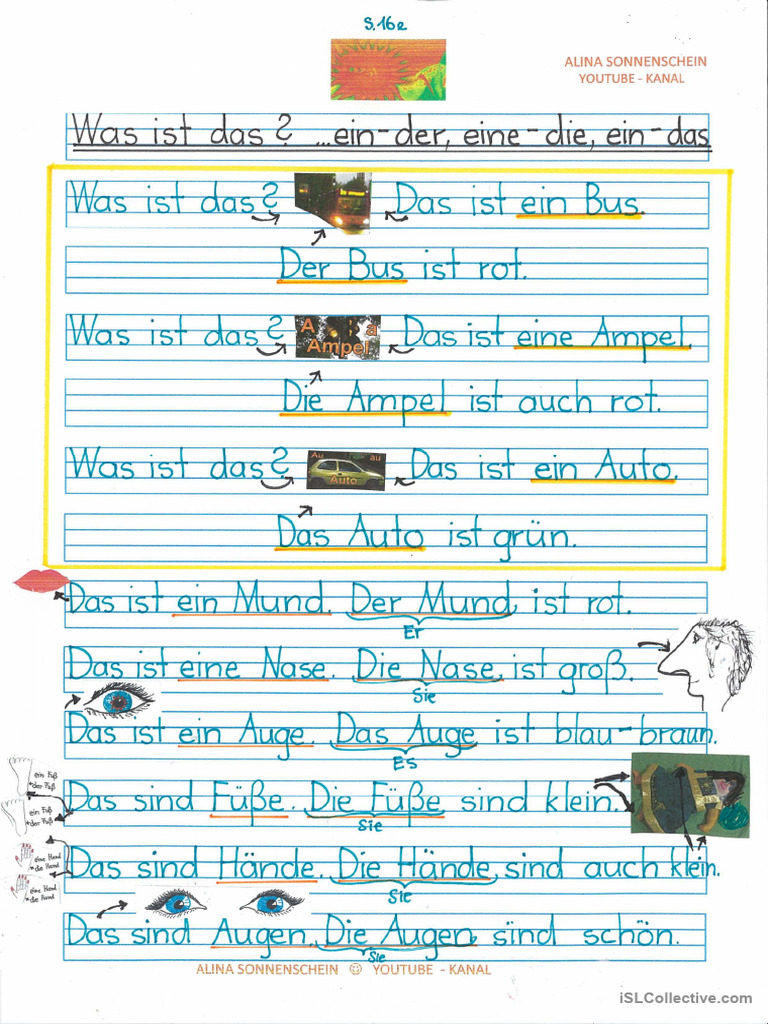 S.16e
ALINA SONNENSCHEIN
YOUTUBE - KANAL
Was ist das? ...ein-der, eine-die, ein-das
Was ist das? Das ist ein Bus.
Der Bus ist rot.
Was ist das? A a Ampel Das ist eine Ampel.
Die Ampel ist auch rot.
Was ist das? Au au Auto Das ist ein Auto.
Das Auto ist grün.
Das ist ein Mund. Der Mund ist rot.
Er
Das ist eine Nase. Die Nase ist groß.
Sie
Das ist ein Auge. Das Auge ist blau-braun.
Es
ein Fuß
der Fuß
Das sind Füße. Die Füße sind klein.
ein Fuß
der Fuß
Sie
eine Hand
die Hand
Das sind Hände. Die Hände sind auch klein.
eine Hand
die Hand
Sie
Das sind Augen. Die Augen sind schön.
Sie
ALINA SONNENSCHEIN ☺ YOUTUBE - KANAL
iSLCollective.com